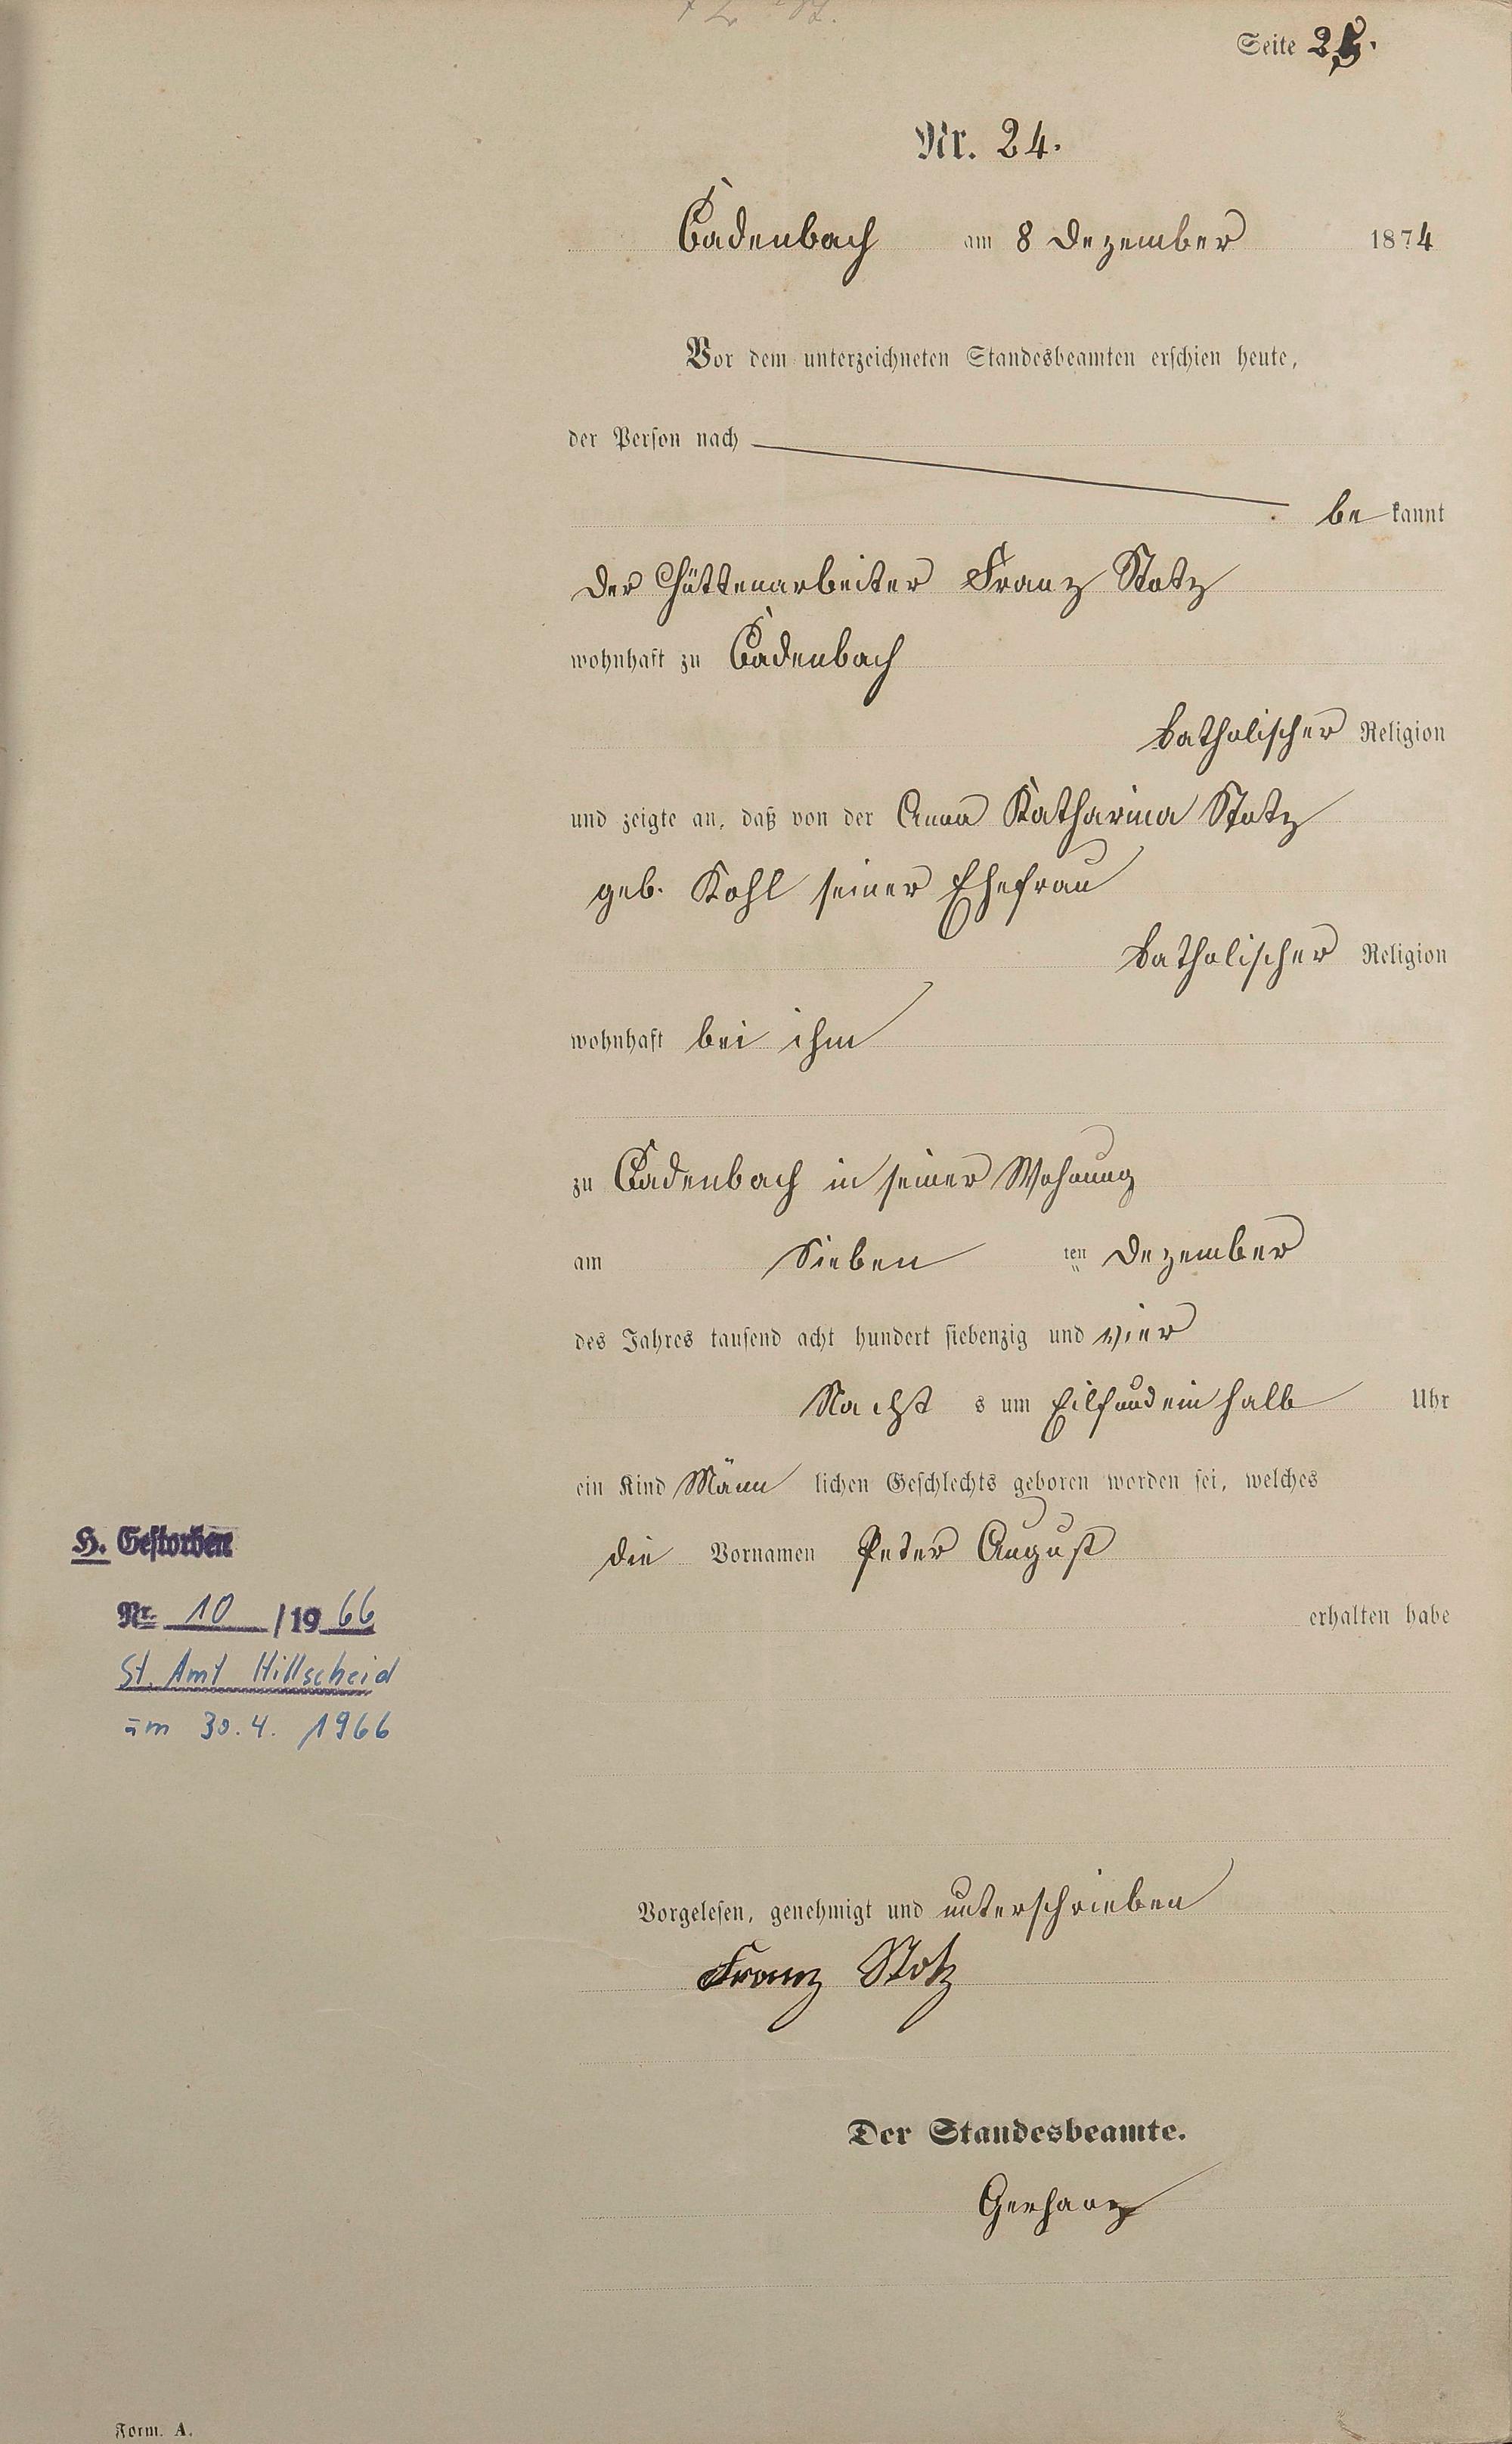 Seite 25.
Nr. 24.
Cadenbach am 8 Dezember 1874
Vor dem unterzeichneten Standesbeamten erschien heute,
der Person nach
bekannt
der Hüttenarbeiter Franz Stotz
wohnhaft zu Cadenbach
katholischer Religion
und zeigte an, daß von der Anna Katharina Stotz
geb. Kohl seiner Ehefrau
katholischer Religion
wohnhaft bei ihm
zu Cadenbach in seiner Wohnung
am Sieben ten Dezember
des Jahres tausend acht hundert siebenzig und vier
Nacht s um Eilfundein halb Uhr
ein Kind Männ lichen Geschlechts geboren worden sei, welches
die Vornamen Peter August
erhalten habe
H. Gestorben
Nr. 10 / 19 66
St. Amt Hillscheid
am 30.4. 1966
Vorgelesen, genehmigt und unterschrieben
Franz Stotz
Der Standesbeamte.
Gerharz
Form. A.